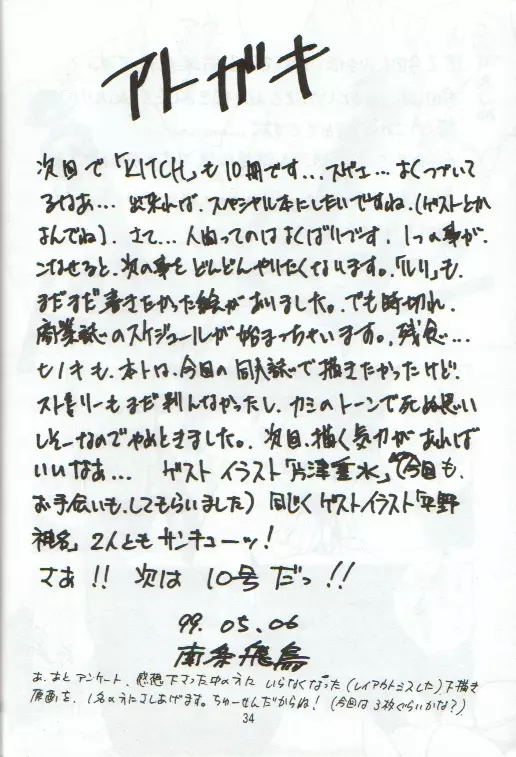 アトガキ
次回で「KITCH」も10冊です…スゲェ…よくつづいて
るなぁ…出来れば、スペシャル本にしたいですね。(ゲストとか
よんでね)。さて…人間ってのはよくばりです。1つの事が、
こなせると、次の事をどんどんやりたくなります。「ルリ」も、
まだまだ書きたかった絵がありました。でも時間切れ。
商業誌のスケジュールが始まっちゃいます。残念…
ヒノキも、本トは、今回の同人誌で描きたかったけど!
ストーリーもまだ判んなかったし、カミのトーンで死ぬ思い
しそーなのでやめときました。次回、描く気力があれば
いいなぁ… ゲストイラスト「片津重水」(今回も、
お手伝いも、してもらいました) 同じくゲストイラスト「平野
神名」2人ともサンキューッ!
さぁ!! 次は 10号だっ!!
99.05.06
南条飛鳥
あ、あとアンケート、感想下さった中の方に いらなくなった(レイアウトミスした)下描き
原画を、1名の方にさしあげます。ちゅーせんだからね! (今回は3枚ぐらいかな?)
34